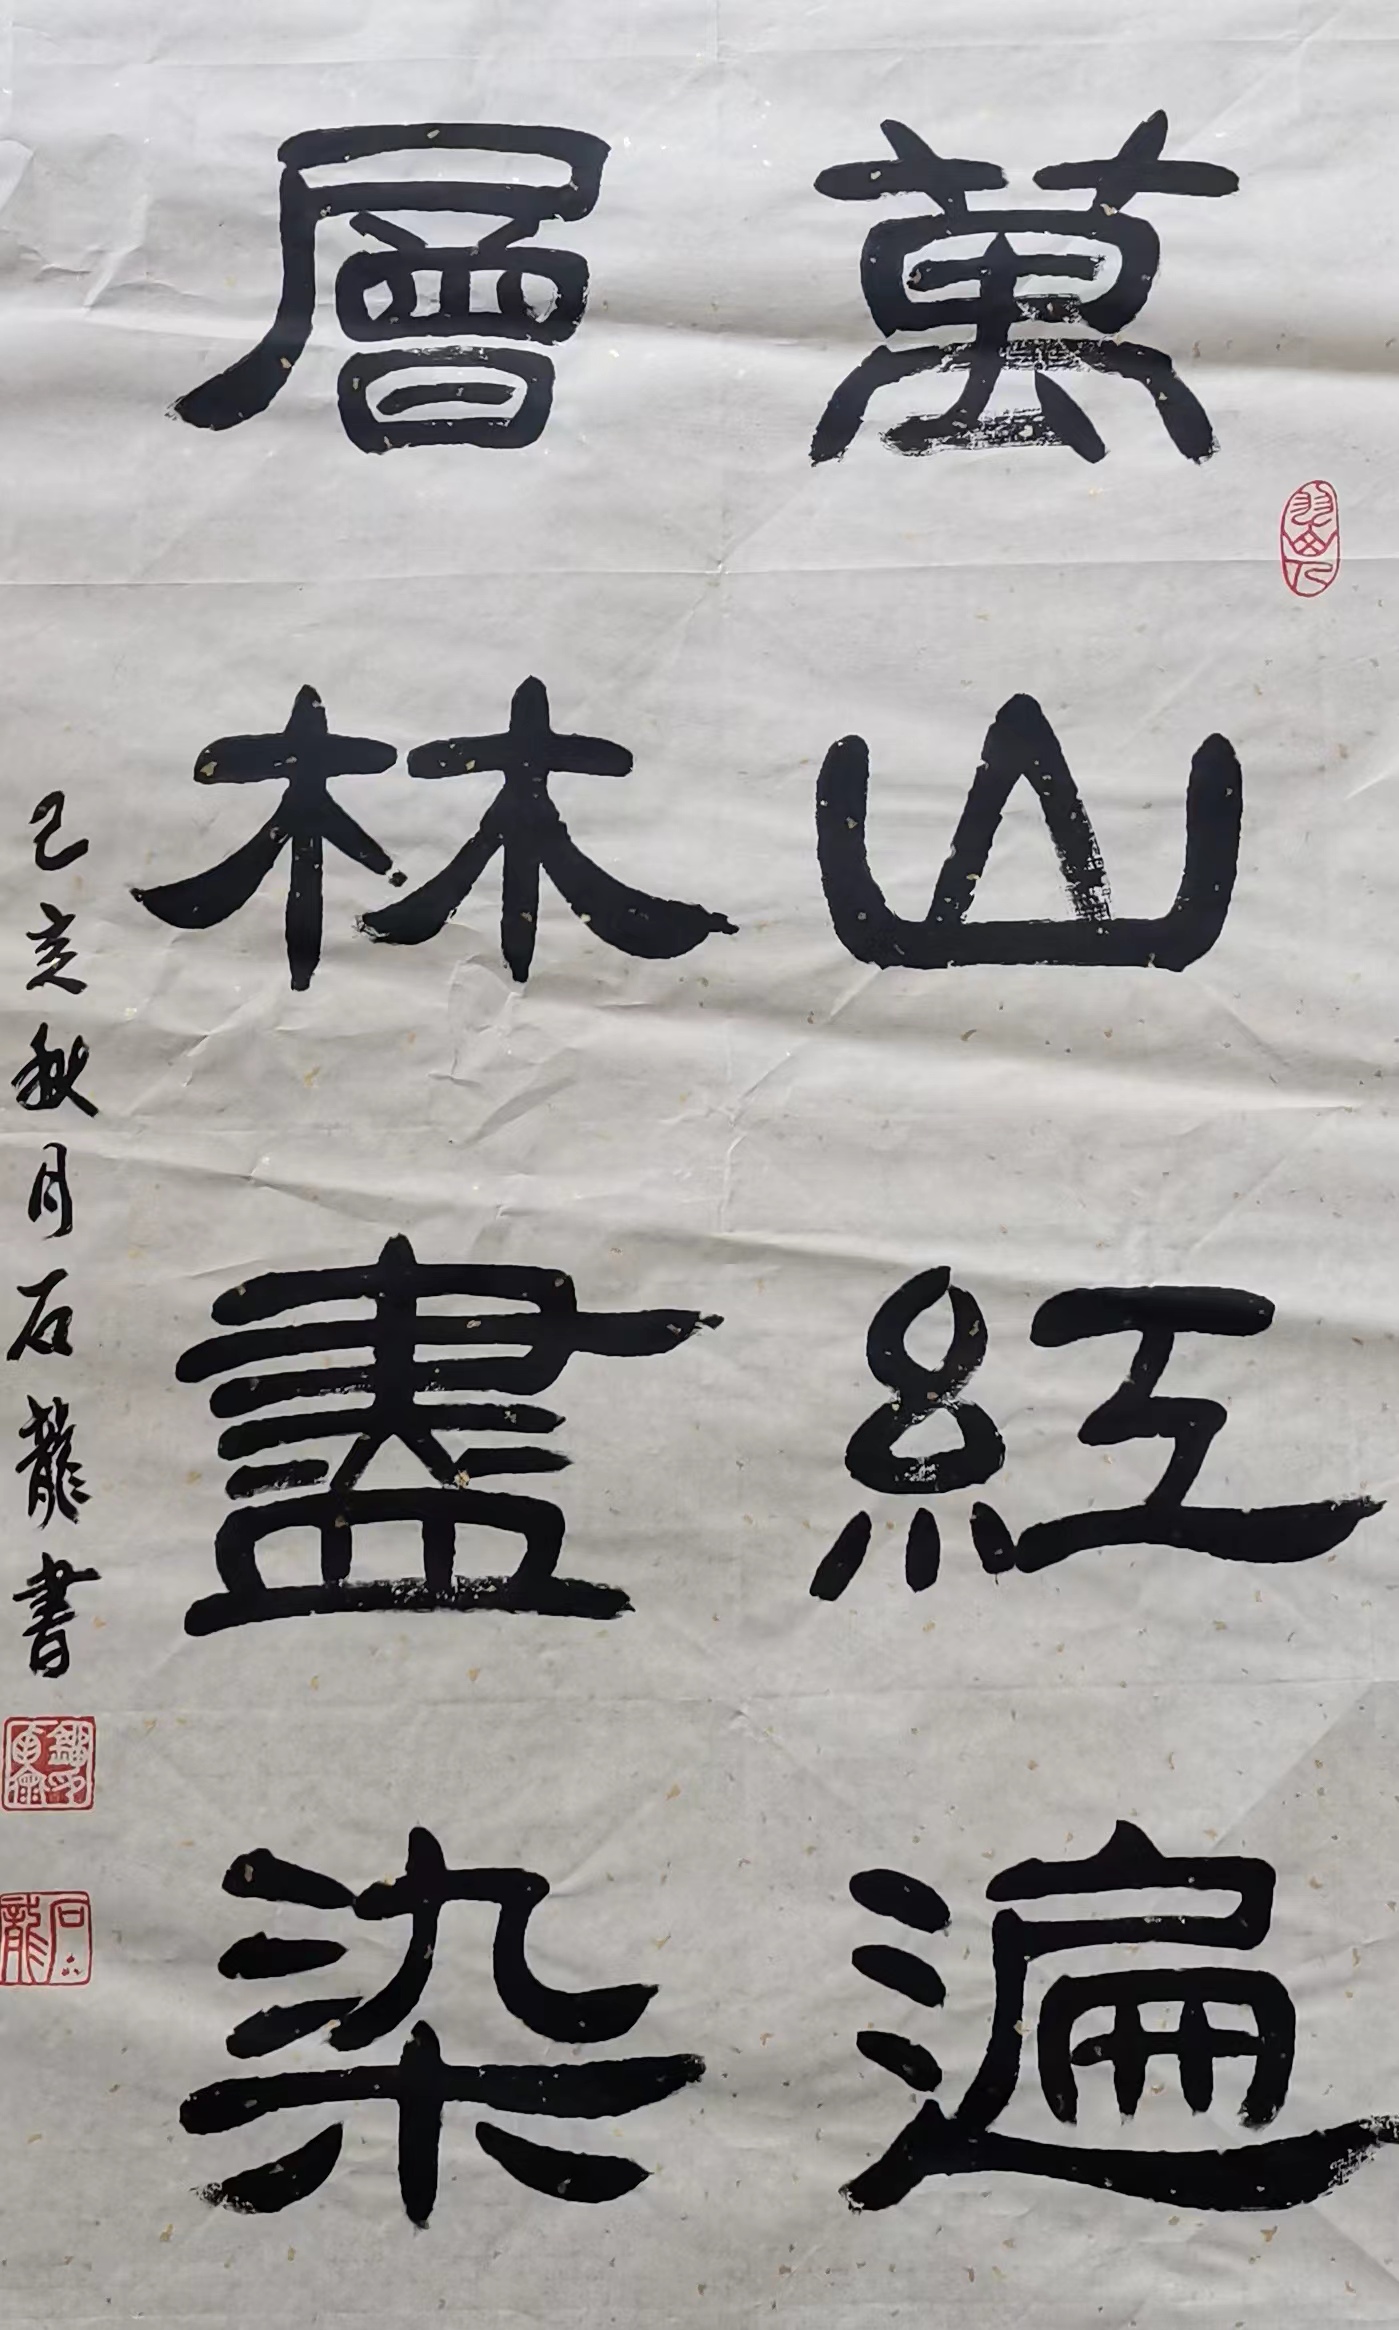 萬山紅遍
層林盡染
己亥秋月石龍書
石龍